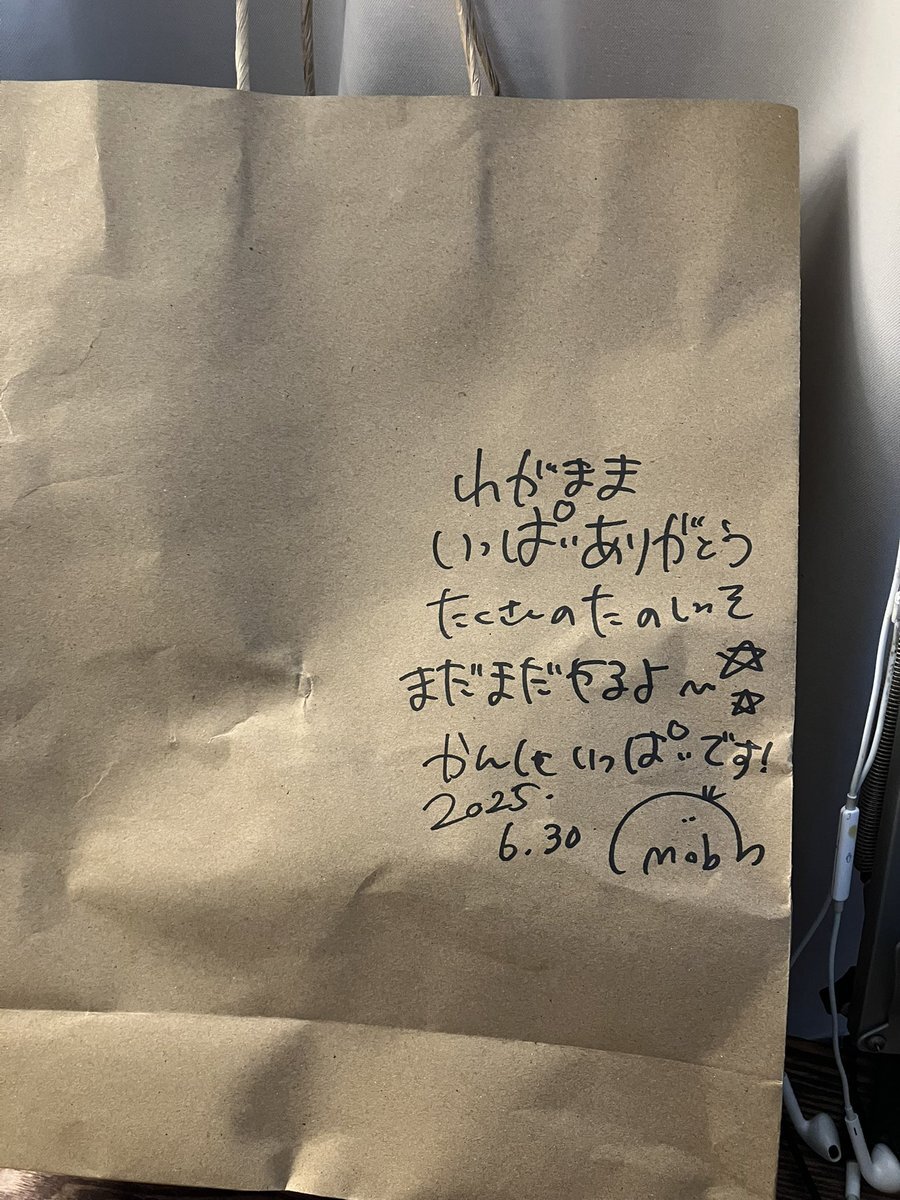 わがまま
いっぱいありがとう
たくさんのたのしいを
まだまだやるよ〜☆☆
かんしゃいっぱいです!
2025.
6.30
mob